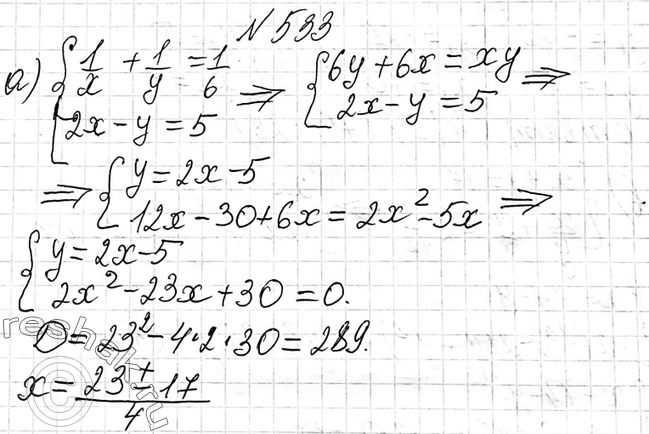 №533
а) { 1/x + 1/y = 1/6 ; 2x - y = 5 ⇒ { 6y + 6x = xy ; 2x - y = 5 ⇒
⇒ { y = 2x - 5 ; 12x - 30 + 6x = 2x² - 5x ⇒
{ y = 2x - 5
2x² - 23x + 30 = 0.
D = 23² - 4·2·30 = 289.
x = (23 ± 17)/4
reshak.ru